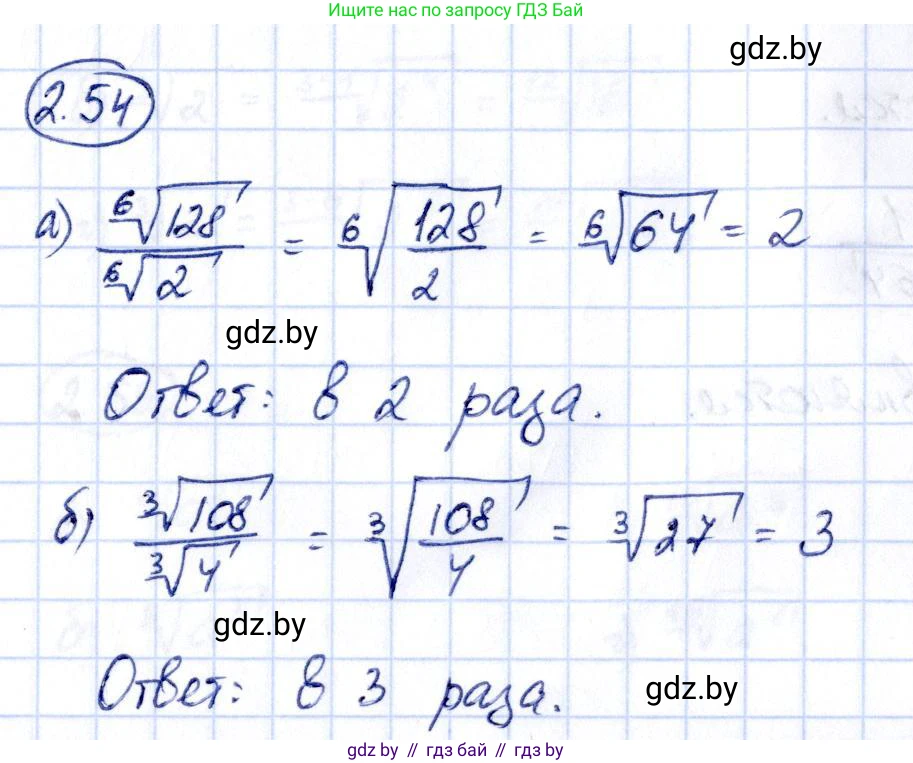 Ищите нас по запросу ГДЗ Бай
gdz.by
2.54
а) ⁶√128 / ⁶√2 = ⁶√(128/2) = ⁶√64 = 2
gdz.by
Ответ: в 2 раза.
б) ³√108 / ³√4 = ³√(108/4) = ³√27 = 3
gdz.by
Ответ: в 3 раза.
gdz.by
gdz.by // гдз бай // gdz.by